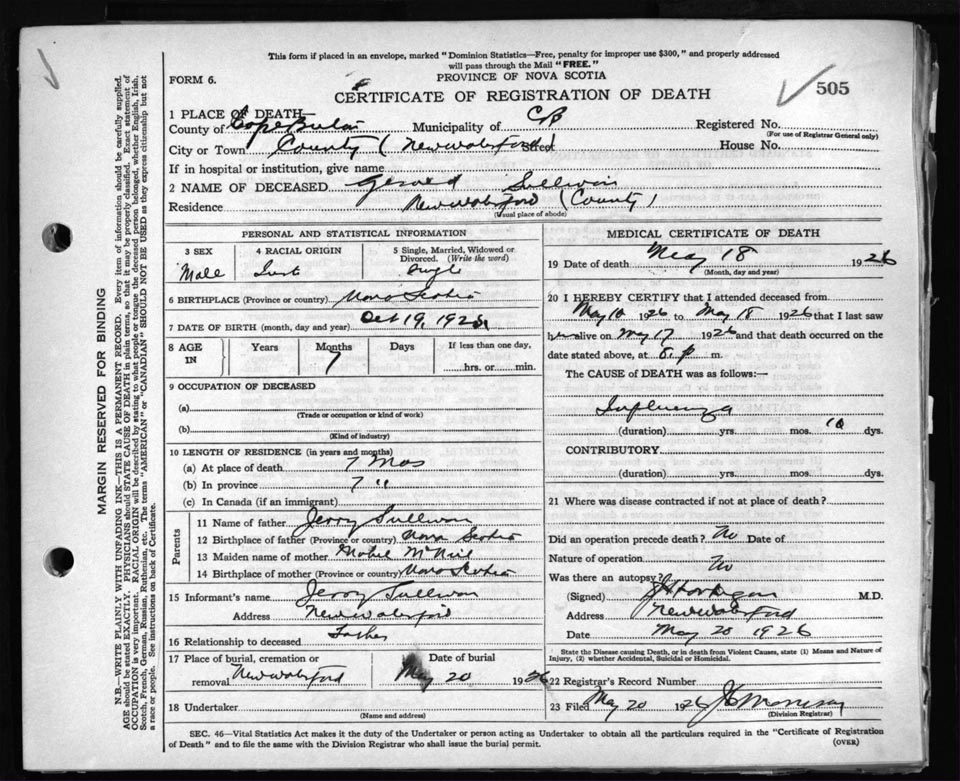 This form if placed in an envelope, marked "Dominion Statistics—Free, penalty for improper use $300," and properly addressed
will pass through the Mail "FREE."
FORM 6.
PROVINCE OF NOVA SCOTIA
CERTIFICATE OF REGISTRATION OF DEATH
505
1 PLACE OF DEATH—
County of Municipality of CB Registered No.
(For use of Registrar General only)
City or Town County ( Newwaterford ) Street House No.
If in hospital or institution, give name
2 NAME OF DECEASED Gerald Sullivan
Residence Newwaterford (County)
(Usual place of abode)
PERSONAL AND STATISTICAL INFORMATION
3 SEX 4 RACIAL ORIGIN 5 Single, Married, Widowed or Divorced. (Write the word)
Male Single
6 BIRTHPLACE (Province or country) Nova Scotia
7 DATE OF BIRTH (month, day and year) Oct 19, 1925
8 AGE IN Years Months Days If less than one day,
7 hrs. or min.
9 OCCUPATION OF DECEASED
(a)
(Trade or occupation or kind of work)
(b)
(Kind of industry)
10 LENGTH OF RESIDENCE (in years and months)
(a) At place of death 7 Mos
(b) In province 7 "
(c) In Canada (if an immigrant)
Parents
11 Name of father Jerry Sullivan
12 Birthplace of father (Province or country) Nova Scotia
13 Maiden name of mother Mabel McNeil
14 Birthplace of mother (Province or country) Nova Scotia
15 Informant's name Jerry Sullivan
Address Newwaterford
16 Relationship to deceased Father
17 Place of burial, cremation or removal Newwaterford Date of burial May 20 1926
18 Undertaker
(Name and address)
MEDICAL CERTIFICATE OF DEATH
19 Date of death May 18 1926
(Month, day and year)
20 I HEREBY CERTIFY that I attended deceased from
May 10 1926 to May 18 1926 that I last saw
h alive on May 17 1926 and that death occurred on the
date stated above, at 8. p m.
The CAUSE of DEATH was as follows:—
Influenza
(duration) yrs. mos. 10 dys.
CONTRIBUTORY
(duration) yrs. mos. dys.
21 Where was disease contracted if not at place of death?
Did an operation precede death? No Date of
Nature of operation
Was there an autopsy? No
(Signed) M.D.
Address Newwaterford
Date May 20 1926
State the Disease causing Death, or in death from Violent Causes, state (1) Means and Nature of
Injury, (2) whether Accidental, Suicidal or Homicidal.
22 Registrar's Record Number
23 Filed May 20 1926
(Division Registrar)
SEC. 46—Vital Statistics Act makes it the duty of the Undertaker or person acting as Undertaker to obtain all the particulars required in the "Certificate of Registration
of Death" and to file the same with the Division Registrar who shall issue the burial permit.
(OVER)
MARGIN RESERVED FOR BINDING
N.B.—WRITE PLAINLY WITH UNFADING INK—THIS IS A PERMANENT RECORD. Every item of information should be carefully supplied.
AGE should be stated EXACTLY. PHYSICIANS should STATE CAUSE OF DEATH in plain terms, so that it may be properly classified. Exact statement of
OCCUPATION is very important. RACIAL ORIGIN will be described by stating to what people or tongue the deceased person belonged, whether English, Irish,
Scotch, French, German, Russian, Ruthenian, etc. The terms "AMERICAN" or "CANADIAN" SHOULD NOT BE USED as they express citizenship but not
a race or people. See instructions on back of Certificate.